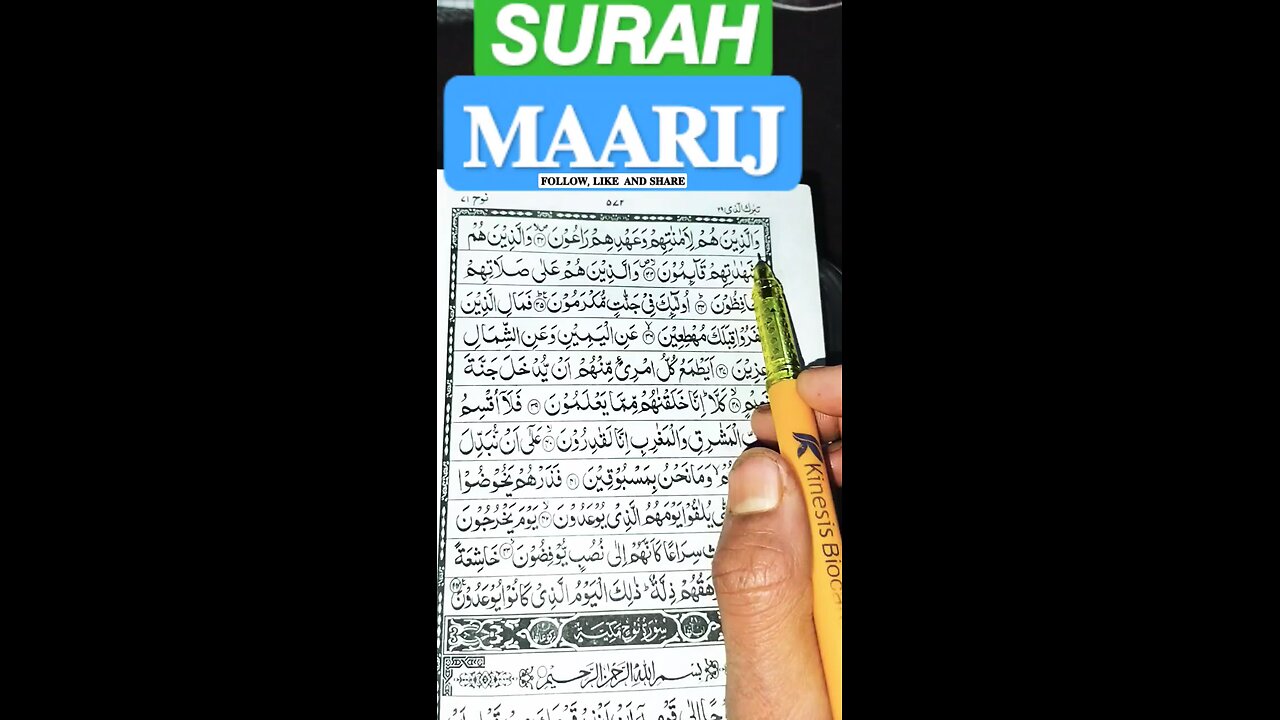 SURAH
MAARIJ
FOLLOW, LIKE AND SHARE
تبرك الذي ٢٩
٥٧٢
نوح ٧١
وَالَّذِيْنَ هُمْ لِاَمٰنٰتِهِمْ وَعَهْدِهِمْ رَاعُوْنَ ۙ﴿٣٢﴾ وَالَّذِيْنَ هُمْ
قَآئِمُوْنَ ۙ﴿٣٣﴾ وَالَّذِيْنَ هُمْ عَلٰى صَلَاتِهِمْ
اُولٰٓئِكَ فِيْ جَنّٰتٍ مُّكْرَمُوْنَ ؕ﴿٣٥﴾ فَمَالِ الَّذِيْنَ
قِبَلَكَ مُهْطِعِيْنَ ۙ﴿٣٦﴾ عَنِ الْيَمِيْنِ وَعَنِ الشِّمَالِ
عِزِيْنَ ﴿٣٧﴾ اَيَطْمَعُ كُلُّ امْرِئٍ مِّنْهُمْ اَنْ يُّدْخَلَ جَنَّةَ
﴿٣٨﴾ كَلَّا ؕ اِنَّا خَلَقْنٰهُمْ مِّمَّا يَعْلَمُوْنَ ﴿٣٩﴾ فَلَاۤ اُقْسِمُ
الْمَشٰرِقِ وَالْمَغٰرِبِ اِنَّا لَقٰدِرُوْنَ ۙ﴿٤٠﴾ عَلٰٓى اَنْ نُّبَدِّلَ
وَمَا نَحْنُ بِمَسْبُوْقِيْنَ ﴿٤١﴾ فَذَرْهُمْ يَخُوْضُوْا
يُلٰقُوْا يَوْمَهُمُ الَّذِيْ يُوْعَدُوْنَ ۙ﴿٤٢﴾ يَوْمَ يَخْرُجُوْنَ
سِرَاعًا كَاَنَّهُمْ اِلٰى نُصُبٍ يُّوْفِضُوْنَ ۙ﴿٤٣﴾ خَاشِعَةً
ذِلَّةٌ ؕ ذٰلِكَ الْيَوْمُ الَّذِيْ كَانُوْا يُوْعَدُوْنَ ﴿٤٤﴾
سورة نوح مكية
بِسْمِ اللّٰهِ الرَّحْمٰنِ الرَّحِيْمِ
Kinesis Bioca